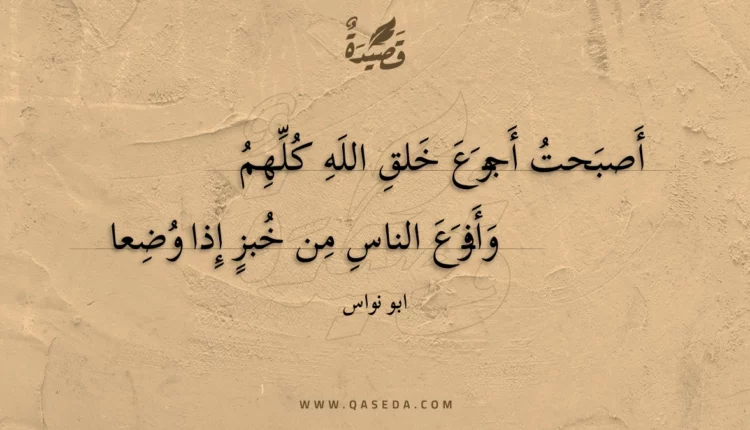 قَصِيْدَةٌ
أَصبَحتُ أَجوَعَ خَلقِ اللَهِ كُلِّهِمُ
وَأَفزَعَ الناسِ مِن خُبزٍ إِذا وُضِعا
ابو نواس
WWW.QASEDA.COM